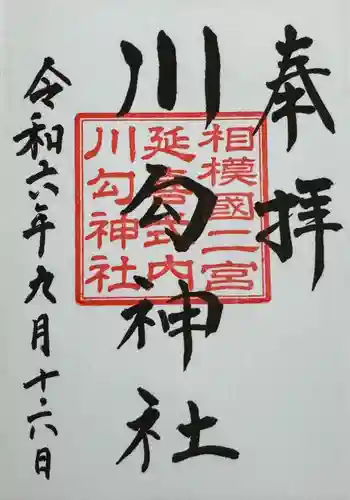 奉拝
川勾神社
相模國二宮
延喜式内
川勾神社
令和六年九月十六日